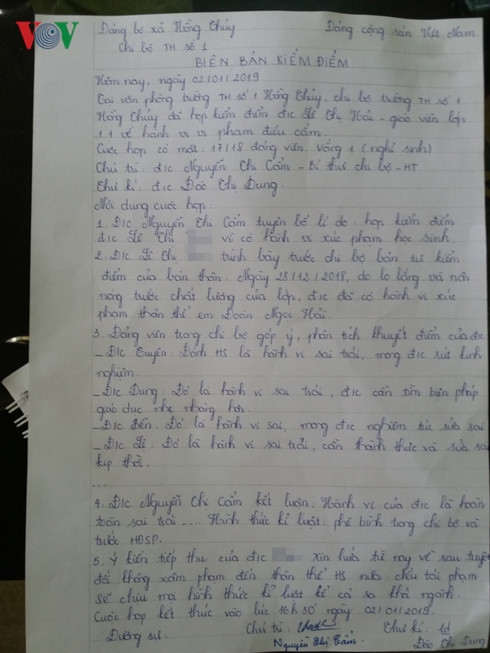 VOV
Đảng bộ xã Hồng Thủy Đảng cộng sản Việt Nam
Chi bộ TH số 1
BIÊN BẢN KIỂM ĐIỂM
Hôm nay, ngày 02/01/2019
Tại văn phòng trường TH số 1 Hồng Thủy, chi bộ trường TH số 1
Hồng Thủy đã họp kiểm điểm đ/c Lê Thị Hải - giáo viên lớp
1.1 về hành vi vi phạm điều cấm.
Cuộc họp có mặt: 17/18 đảng viên. Vắng 1 (nghỉ sinh)
Chủ trì: đ/c Nguyễn Thị Cẩm - Bí thư chi bộ - HT
Thư kí: đ/c Đào Thị Dung.
Nội dung cuộc họp
1. Đ/c Nguyễn Thị Cẩm tuyên bố lí do: họp kiểm điểm
đ/c Lê Thị vì có hành vi xúc phạm học sinh.
2. Đ/c Lê Thị trình bày trước chi bộ bản tự kiểm
điểm của bản thân. Ngày 28/12/2018, do lo lắng và nôn
nóng trước chất lượng của lớp, đ/c đã có hành vi xúc
phạm thân thể em Đoàn Ngọc Hải.
3. Đảng viên trong chi bộ góp ý, phân tích khuyết điểm của đ/c
- Đ/c Quyên: Đánh HS là hành vi sai trái, mong đ/c rút kinh
nghiệm.
- Đ/c Dung: Đó là hành vi sai trái, đ/c cần tìm biện pháp
giáo dục nhẹ nhàng hơn.
- Đ/c Bền: Đó là hành vi sai, mong đ/c nghiêm túc sửa sai
- Đ/c Lê: Đó là hành vi sai trái, cần thành thực và sửa sai
kịp thời.
...
4. Đ/c Nguyễn Thị Cẩm kết luận: Hành vi của đ/c là hoàn
toàn sai trái .... Hình thức kỉ luật: phê bình trong chi bộ và
trước HĐSP.
5. Ý kiến tiếp thu của đ/c Xin hứa từ nay về sau tuyệt
đối không xâm phạm đến thân thể HS nữa. Nếu tái phạm
sẽ chịu mọi hình thức kỉ luật kể cả sa khỏi ngành.
Cuộc họp kết thúc vào lúc 16h30 ngày 02/01/2019.
Đương sự: Chủ trì: Thư kí: 
Nguyễn Thị Cẩm Đào Thị Dung